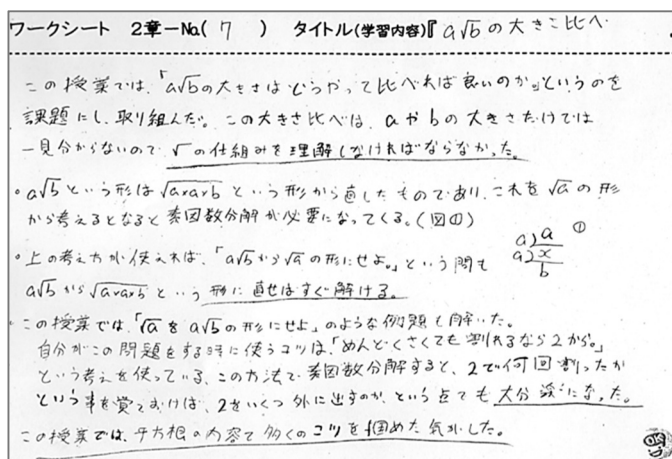 ワークシート 2章－No.( 7 ) タイトル(学習内容)『a√bの大きさ比べ
この授業では、「a√bの大きさはどうやって比べれば良いのか」というのを
課題にし、取り組んだ。この大きさ比べは、aやbの大きさだけでは
一見分からないので√の仕組みを理解しなければならなかった。
・a√bという形は√a×a×bという形から直したものであり、これを√aの形
から考えるとなると素因数分解が必要になってくる。(図①)
①
a)a
a)x
b
・上の考え方が使えれば、「a√bから√aの形にせよ。」という問も
a√bから√a×a×bという形に直せばすぐ解ける。
・この授業では、「√aをa√bの形にせよ」のような例題も解いた。
自分がこの問題をする時に使うコツは、「めんどくさくても割れるなら2から。」
という考えを使っている。この方法で素因数分解すると、2で何回割ったか
という事を覚えておけば、2をいくつ外に出すのか、という点でも大分楽になった。
この授業では、平方根の内容で多くのコツを掴めた気がした。